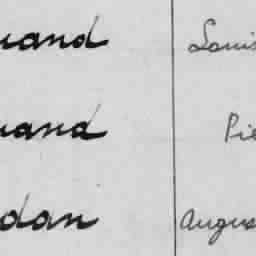 uand Louis
uand Pie
dan Augus